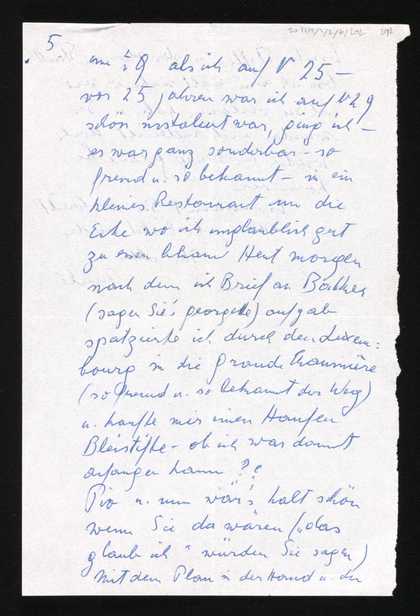 5
um ½ 9 als ich auf N 25 –
vor 25 Jahren war ich auf N 29
schön installiert war, ging ich –
es war ganz sonderbar – so
fremd u. so bekannt – in ein
kleines Restaurant um die
Ecke wo ich unglaublich gut
zu essen bekam Heut morgen
nach dem ich Brief an
(sagen Sie's georgette) aufgab
spatzierte ich durch den Luxem=
bourg in die Grande Chaumière
(so fremd u. so bekannt der Weg)
u. kaufte mir einen Haufen
Bleistifte – ob ich was damit
anfangen kann ??
u. nun wär's halt schön
wenn Sie da wären („das
glaub ich" würden Sie sagen)
Mit dem Plan in der Hand u. der